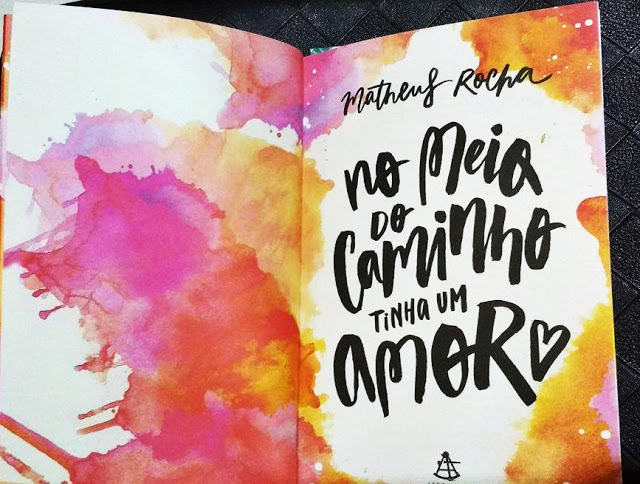 Matheus Rocha
No Meio
do
Caminho
tinha um
amor